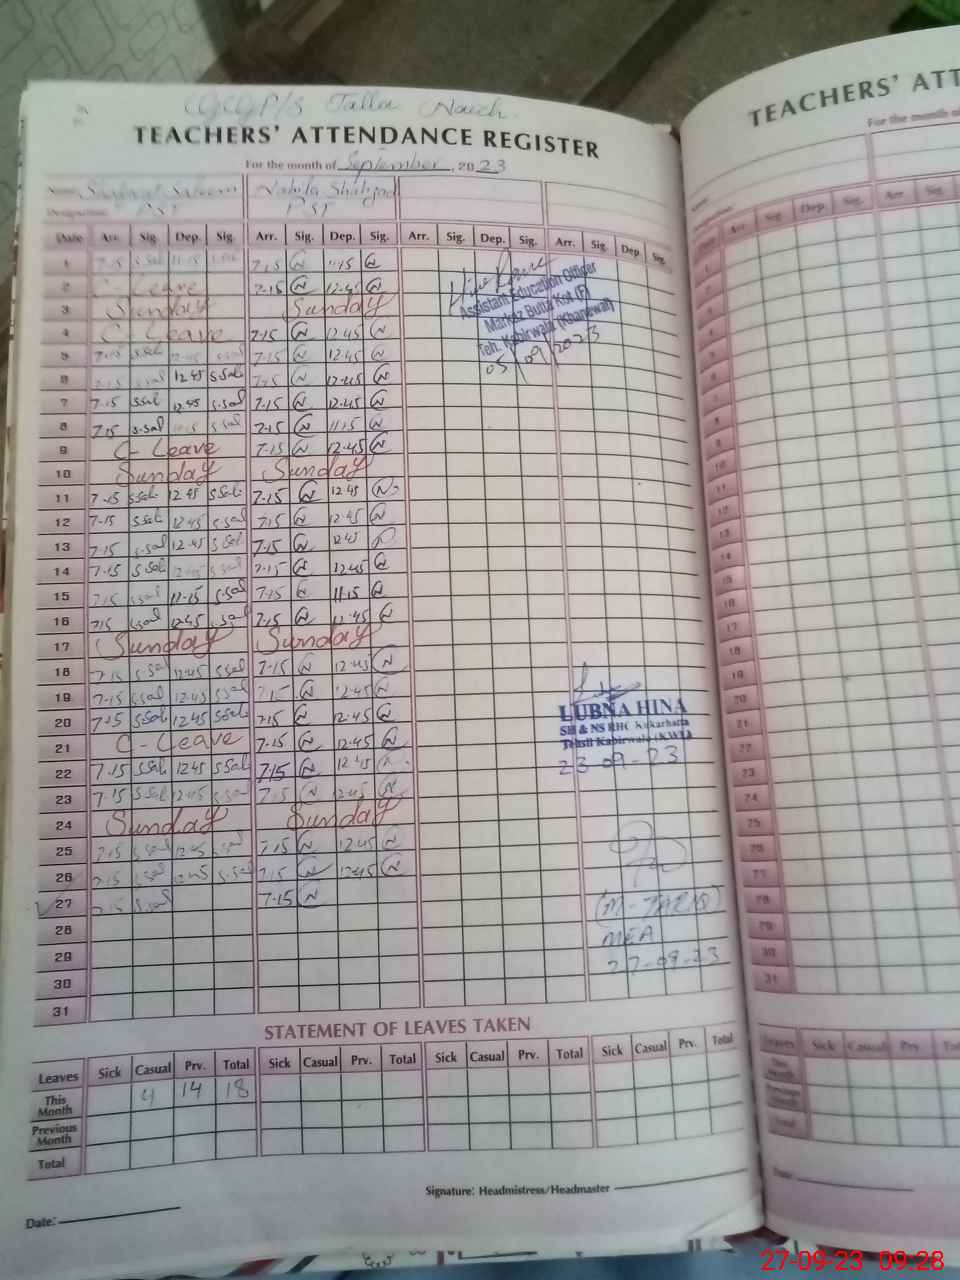 GGP/S Talla
TEACHERS' ATTENDANCE REGISTER
For the month of September, 2023
Name Saleem Nabila Shahzad
Designation PST PST
Date Arr. Sig. Dep. Sig. Arr. Sig. Dep. Sig. Arr. Sig. Dep. Sig. Arr. Sig. Dep. Sig.
1 7-15 S.Sal 11-15 S.Sal 7.15 N 11.15 N
2 C-Leave 7.15 N 12.45 N
3 Sunday Sunday
4 C-Leave 7.15 N 12.45 N
5 7-15 S.Sal 12-45 S.Sal 7.15 N 12.45 N
6 7-15 S.Sal 12.45 S.Sal 7.15 N 12.45 N
7 7-15 S.Sal 12.45 S.Sal 7.15 N 12.45 N
8 7-15 S.Sal 11-15 S.Sal 7.15 N 11.15 N
9 C-Leave 7.15 N 12.45 N
10 Sunday Sunday
11 7-15 S.Sal 12.45 S.Sal 7.15 N 12.45 N
12 7-15 S.Sal 12.45 S.Sal 7.15 N 12.45 N
13 7-15 S.Sal 12.45 S.Sal 7.15 N 12.45
14 7-15 S.Sal 12.45 S.Sal 7.15 N 12.45 N
15 7-15 S.Sal 11-15 S.Sal 7.15 N 11.15 N
16 7.15 S.Sal 12.45 S.Sal 7.15 N 12.45 N
17 Sunday Sunday
18 7-15 S.Sal 12.45 S.Sal 7.15 N 12.45 N
19 7-15 S.Sal 12.45 S.Sal 7.15 N 12.45 N
20 7-15 S.Sal 12.45 S.Sal 7.15 N 12.45 N
21 C-Leave 7.15 N 12.45 N
22 7-15 S.Sal 12.45 S.Sal 7.15 N 12.45 N
23 7-15 S.Sal 12.45 S.Sal 7.15 N 12.45 N
24 Sunday Sunday
25 7-15 S.Sal 12.45 S.Sal 7.15 N 12.45 N
26 7-15 S.Sal 12.45 S.Sal 7.15 N 12.45 N
27 7-15 S.Sal 7.15 N
28
29
30
31
Assistant Education Officer
Markaz Buta Kot (F)
Teh. Kabirwala (Khanewal)
05/09/2023
LUBNA HINA
SH & NS RHC Kukarhatta
Tehsil Kabirwala (KWL)
23-09-23
(M-TARIQ)
MEA
27-09-23
STATEMENT OF LEAVES TAKEN
Leaves Sick Casual Prv. Total Sick Casual Prv. Total Sick Casual Prv. Total Sick Casual Prv. Total
This Month 4 14 18
Previous Month
Total
Signature: Headmistress/Headmaster
Date:
TEACHERS' ATT
For the month of
Arr Sig. Dep. Sig. Arr. Sig.
Leaves Sick Casual Prv.
This Month
Previous Month
Total
Date:
27-09-23 09:28